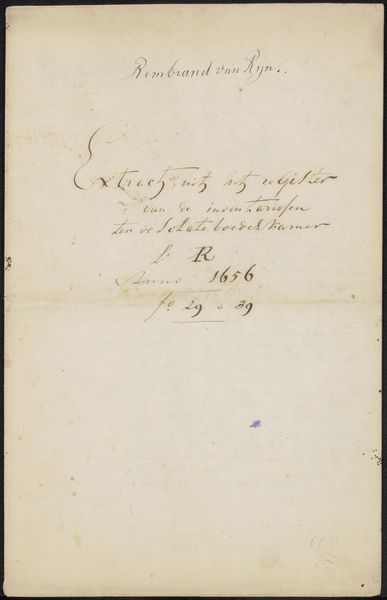 Rembrand van Ryn.
Extract uit het register
van de inventarissen
ter desolate boedelkamer
La R
Anno 1656
fo 29 a 39